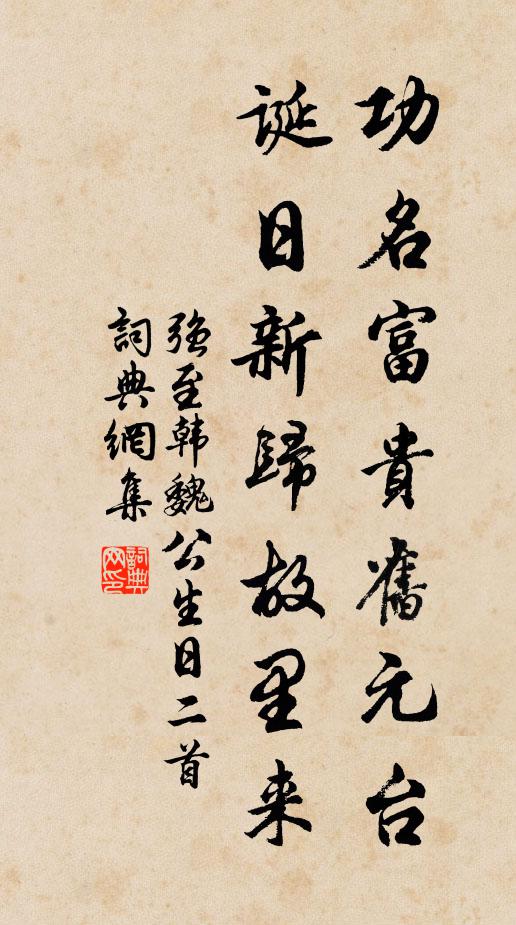 功名富貴舊元台
誕日新歸故里来
強至韩魏公生日二首
詞典網集
詞典网印